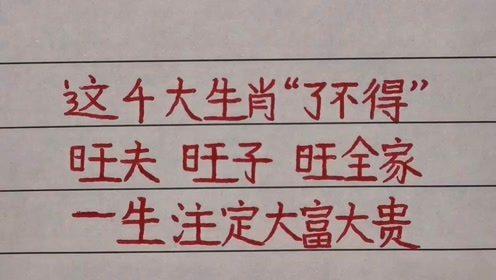 这4大生肖“了不得”
旺夫 旺子 旺全家
一生注定大富大贵